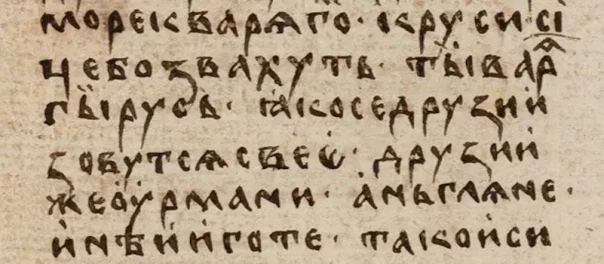 морекварѧго · крꙋси · сі
цебозвахуть · тъıварѧ
гъıрусь · ꙗкоседрузии
зовутсѧсвеѡ · друзии
жеоурмани · аньглѧне ·
инѣииготе · такоиси